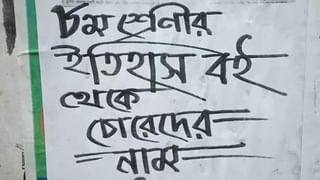 ৮ম শ্রেণীর
ইতিহাস বই
থেকে
চোরেদের
নাম